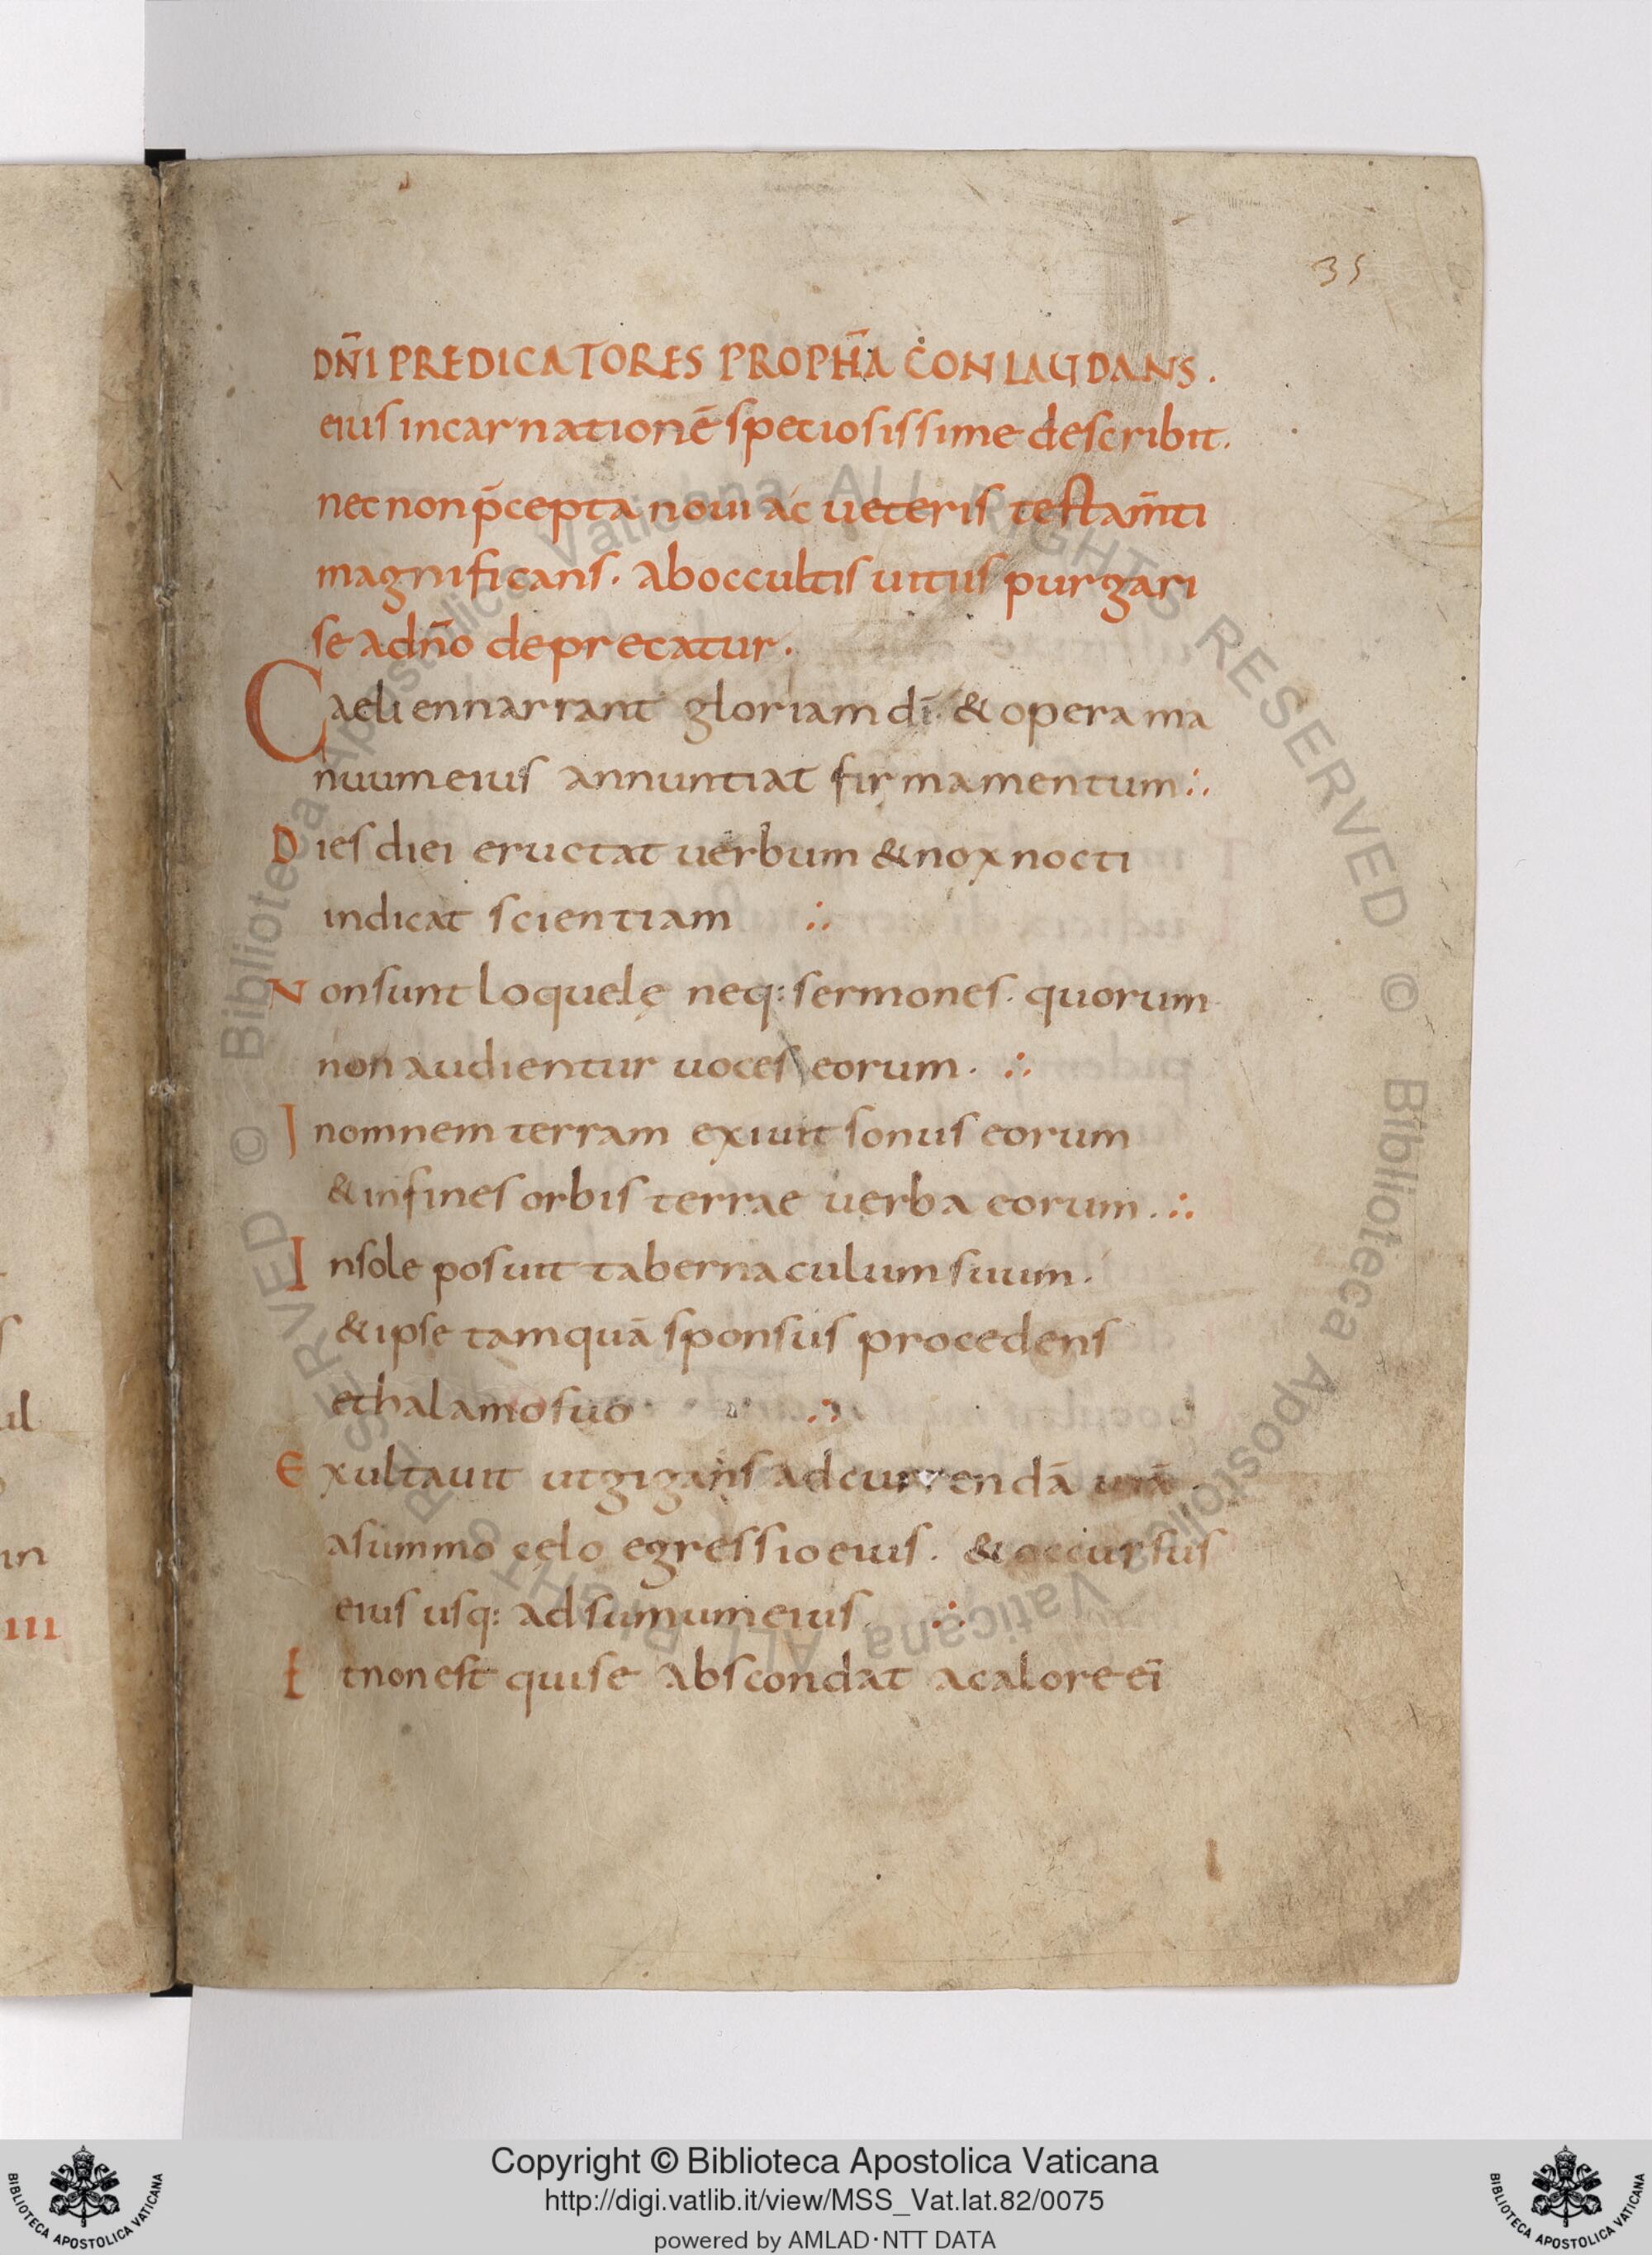 35
DN̄I PREDICATORES PROPH̄A CONLAUDANS.
eius incarnationē speciosissime describit.
nec non p̄cepta noui ac ueteris testam̄ti
magnificans. ab occultis uitiis purgari
se a dn̄o deprecatur.
Caeli ennarrant gloriam dī. & opera ma
nuum eius annuntiat firmamentum∴
Dies diei eructat uerbum & nox nocti
indicat scientiam ∴
Non sunt loquelę neq: sermones. quorum
non audientur uoces eorum. ∴
In omnem terram exiuit sonus eorum
& in fines orbis terrae uerba eorum. ∴
In sole posuit tabernaculum suum.
& ipse tamquā sponsus procedens
e thalamo suo ∴
Exultauit ut gigans ad currendā uiā.
a summo cęlo egressio eius. & occursus
eius usq: ad summum eius. ∴
Et non est qui se abscondat a calore eī
ul
in
III
© Biblioteca Apostolica Vaticana ALL RIGHTS RESERVED
© Biblioteca Apostolica Vaticana ALL RIGHTS RESERVED
Copyright © Biblioteca Apostolica Vaticana
http://digi.vatlib.it/view/MSS_Vat.lat.82/0075
powered by AMLAD·NTT DATA
BIBLIOTECA APOSTOLICA VATICANA
BIBLIOTECA APOSTOLICA VATICANA